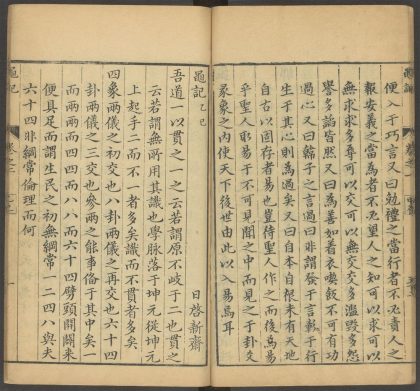 便入于巧言又曰勉禮之當行者不必責人之
報安義之當為者不必望人之知可以求可以
無求求多辱可以交可以無交交多濫毀多怨
譽多諂皆然又曰為善如着衣喫飯不可有功
過心又曰
生于其心則為過矣又曰自本自根未有天地
自古以固存者易也豈待聖人作之而後為易
乎聖人取易于不可見聞之中而見之于卦爻
彖象之內使天下後世由此以入易焉耳
黽記
日啓新齋
吾道一以貫之一之云者謂原不岐于二也貫之
云者謂無所用其識也學脉落于坤元從坤元
上起手二而不一者多矣識而不貫者多矣
四象兩儀之初交也八卦兩儀之再交也六十四
卦兩儀之三交也參兩之能事備于其中矣一
而兩兩而四四而八八而六十四劈頭開闢來
便具足而謂生民之初無綱常一二四八與夫
六十四非綱常倫理而何